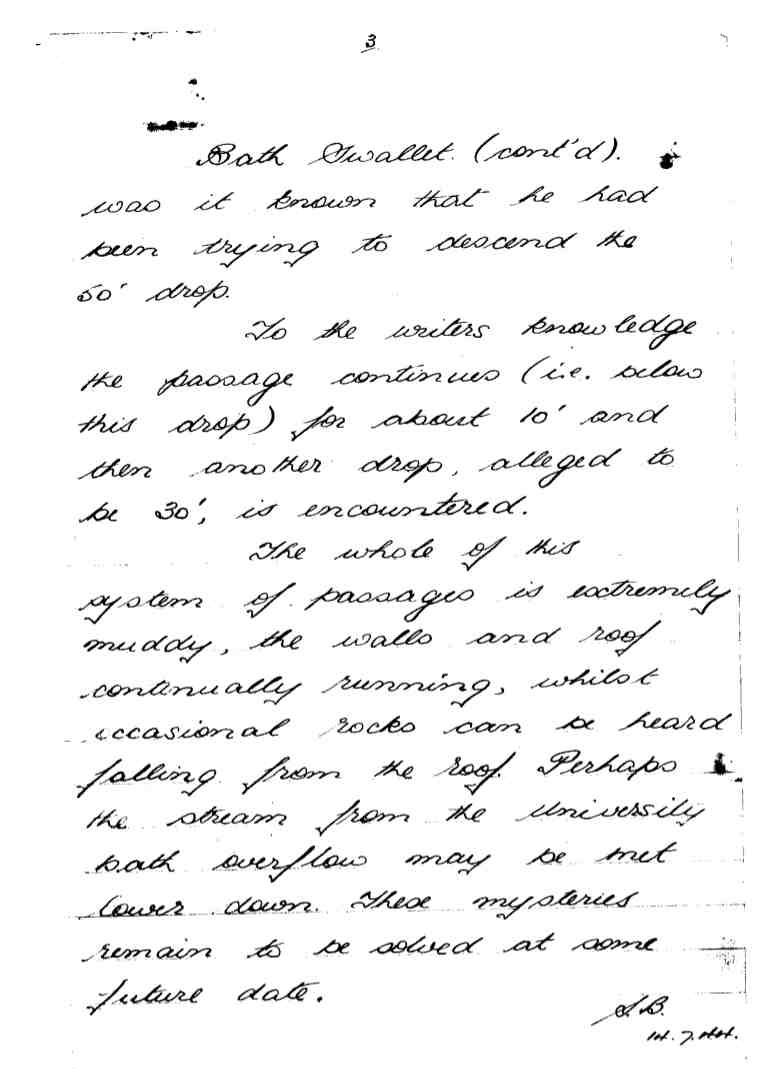 3
Bath Swallet. (cont'd).
was it known that he had
been trying to descend the
50' drop.
To the writers knowledge
the passage continues (i.e. below
this drop) for about 10' and
then another drop, alleged to
be 30', is encountered.
The whole of this
system of passages is extremely
muddy, the walls and roof
continually running, whilst
occasional rocks can be heard
falling from the roof. Perhaps
the stream from the University
bath overflow may be met
lower down. These mysteries
remain to be solved at some
future date.
S.B.
14.7.44.